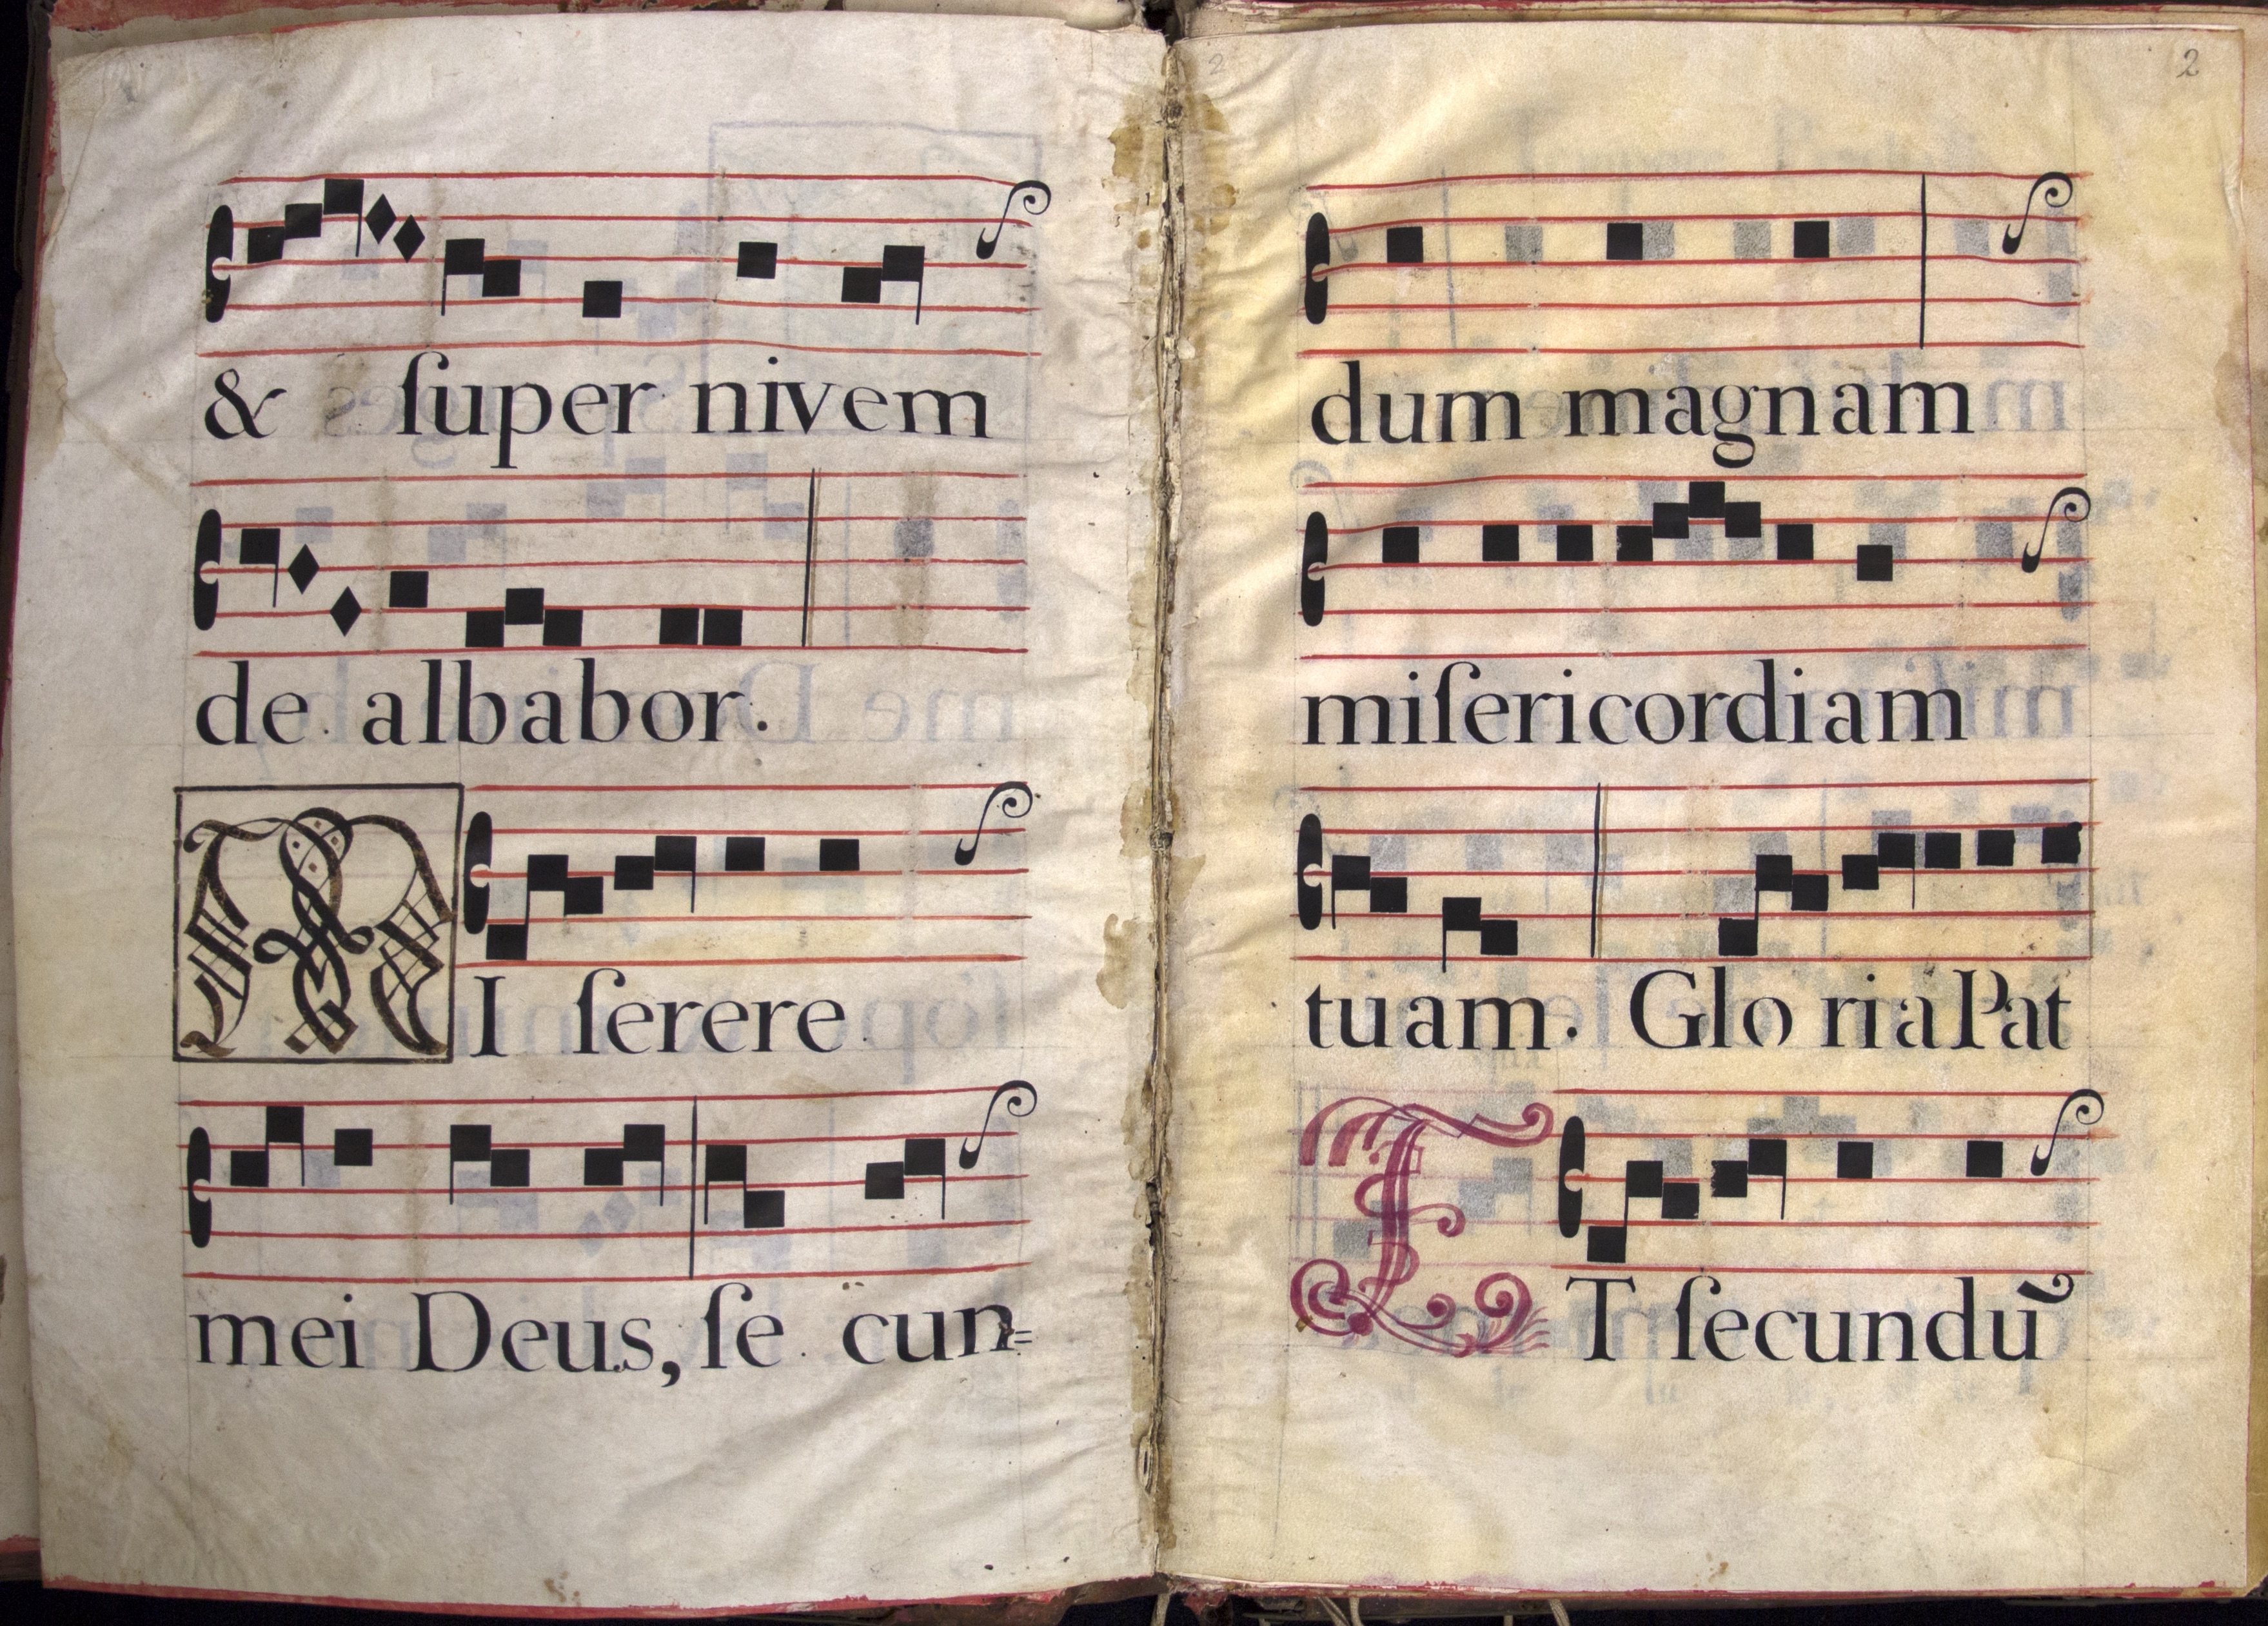 & ſuper nivem
de albabor.
MI ſerere
mei Deus, ſe cun=
2
dum magnam
miſericordiam
tuam. Glo ria Pat
ET ſecundũ